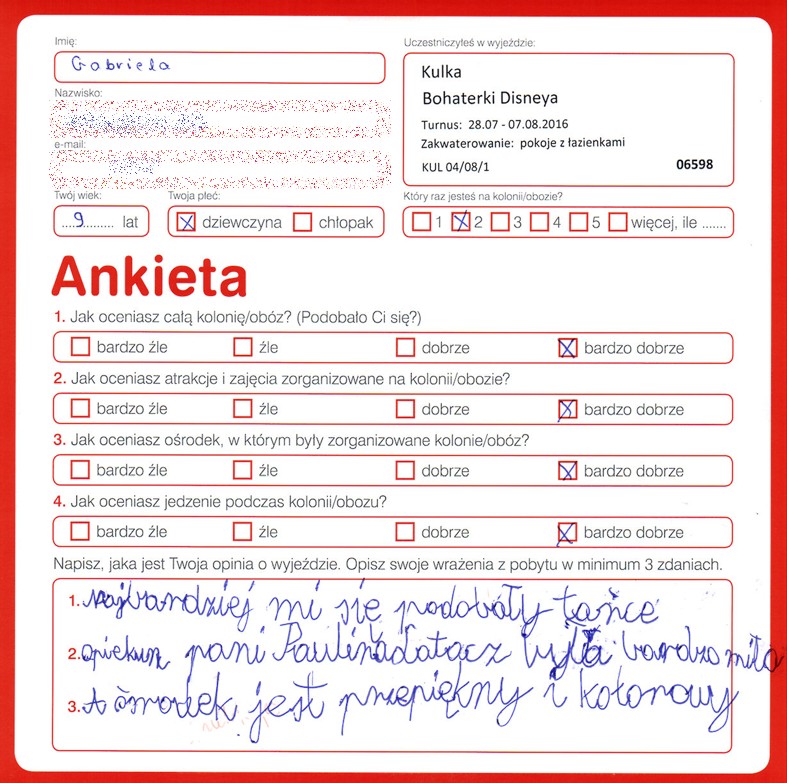 Imię:
Gabriela
Nazwisko:
e-mail:
Twój wiek:
9 lat
Twoja płeć:
dziewczyna chłopak
Uczestniczyłeś w wyjeździe:
Kulka
Bohaterki Disneya
Turnus: 28.07 - 07.08.2016
Zakwaterowanie: pokoje z łazienkami
KUL 04/08/1 06598
Który raz jesteś na kolonii/obozie?
1 2 3 4 5 więcej, ile .......
Ankieta
1. Jak oceniasz całą kolonię/obóz? (Podobało Ci się?)
bardzo źle źle dobrze bardzo dobrze
2. Jak oceniasz atrakcje i zajęcia zorganizowane na kolonii/obozie?
bardzo źle źle dobrze bardzo dobrze
3. Jak oceniasz ośrodek, w którym były zorganizowane kolonie/obóz?
bardzo źle źle dobrze bardzo dobrze
4. Jak oceniasz jedzenie podczas kolonii/obozu?
bardzo źle źle dobrze bardzo dobrze
Napisz, jaka jest Twoja opinia o wyjeździe. Opisz swoje wrażenia z pobytu w minimum 3 zdaniach.
1. Najbardziej mi się podobały tańce
2. opiekun pani Paulina była bardzo miła
3. A ośrodek jest przepiękny i kolorowy